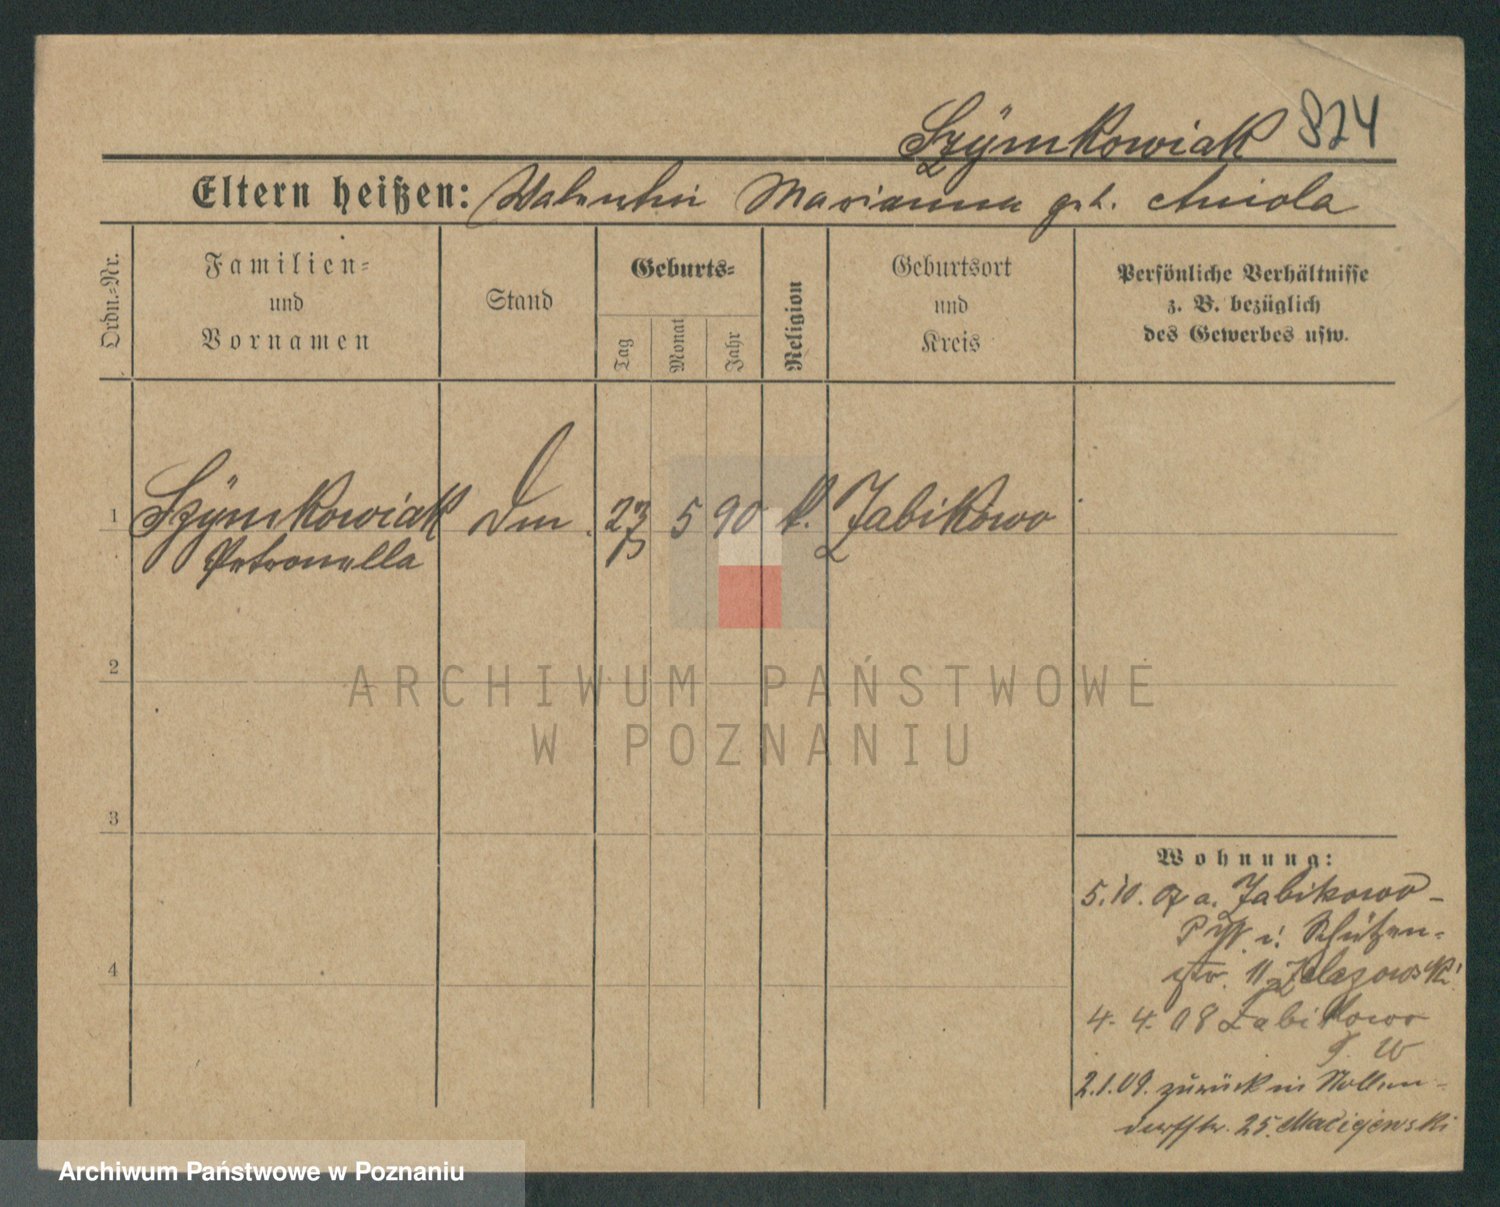 Szÿmkowiak 824
Eltern heißen: Valentin Marianna geb. Aniola
Ordn.-Nr.
Familien-
und
Vornamen
Stand
Geburts-
Tag
Monat
Jahr
Religion
Geburtsort
und
Kreis
Persönliche Verhältnisse
z. B. bezüglich
des Gewerbes usw.
1 Szÿmkowiak Dm. 23 5 90 k. Zabikowo
Petronella
2
ARCHIWUM PAŃSTWOWE
W POZNANIU
3
4
Wohnung:
5.10.07 a. Zabikowo-
i. Schützen-
str. 11 Zelazowski
4. 4. 08 Zabikowo
2.1.09. zurück in Nollen-
dorffstr. 25. Maciejewski
Archiwum Państwowe w Poznaniu